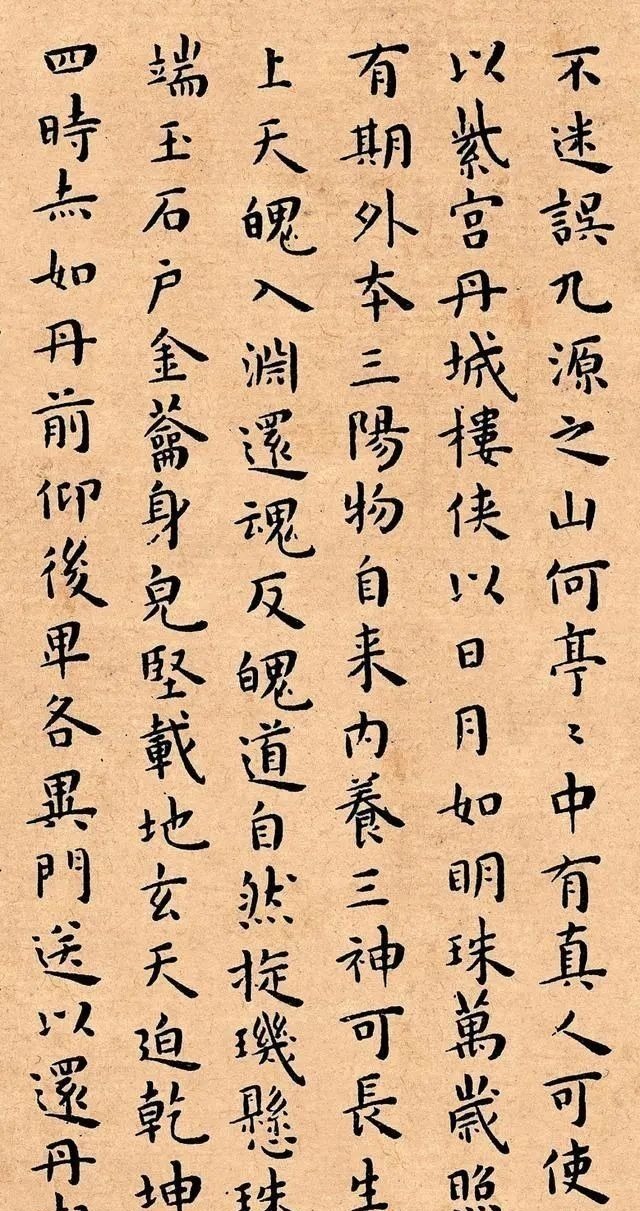 不迷誤九源之山何亭〻中有真人可使
以紫宮丹城樓侠以日月如明珠萬歲照
有期外本三陽物自来内養三神可長生
上天魄入淵還魂反魄道自然捉璣懸珠
端玉石戶金籥身皃堅載地玄天迫乾坤
四時赤如丹前仰後卑各異門送以還丹